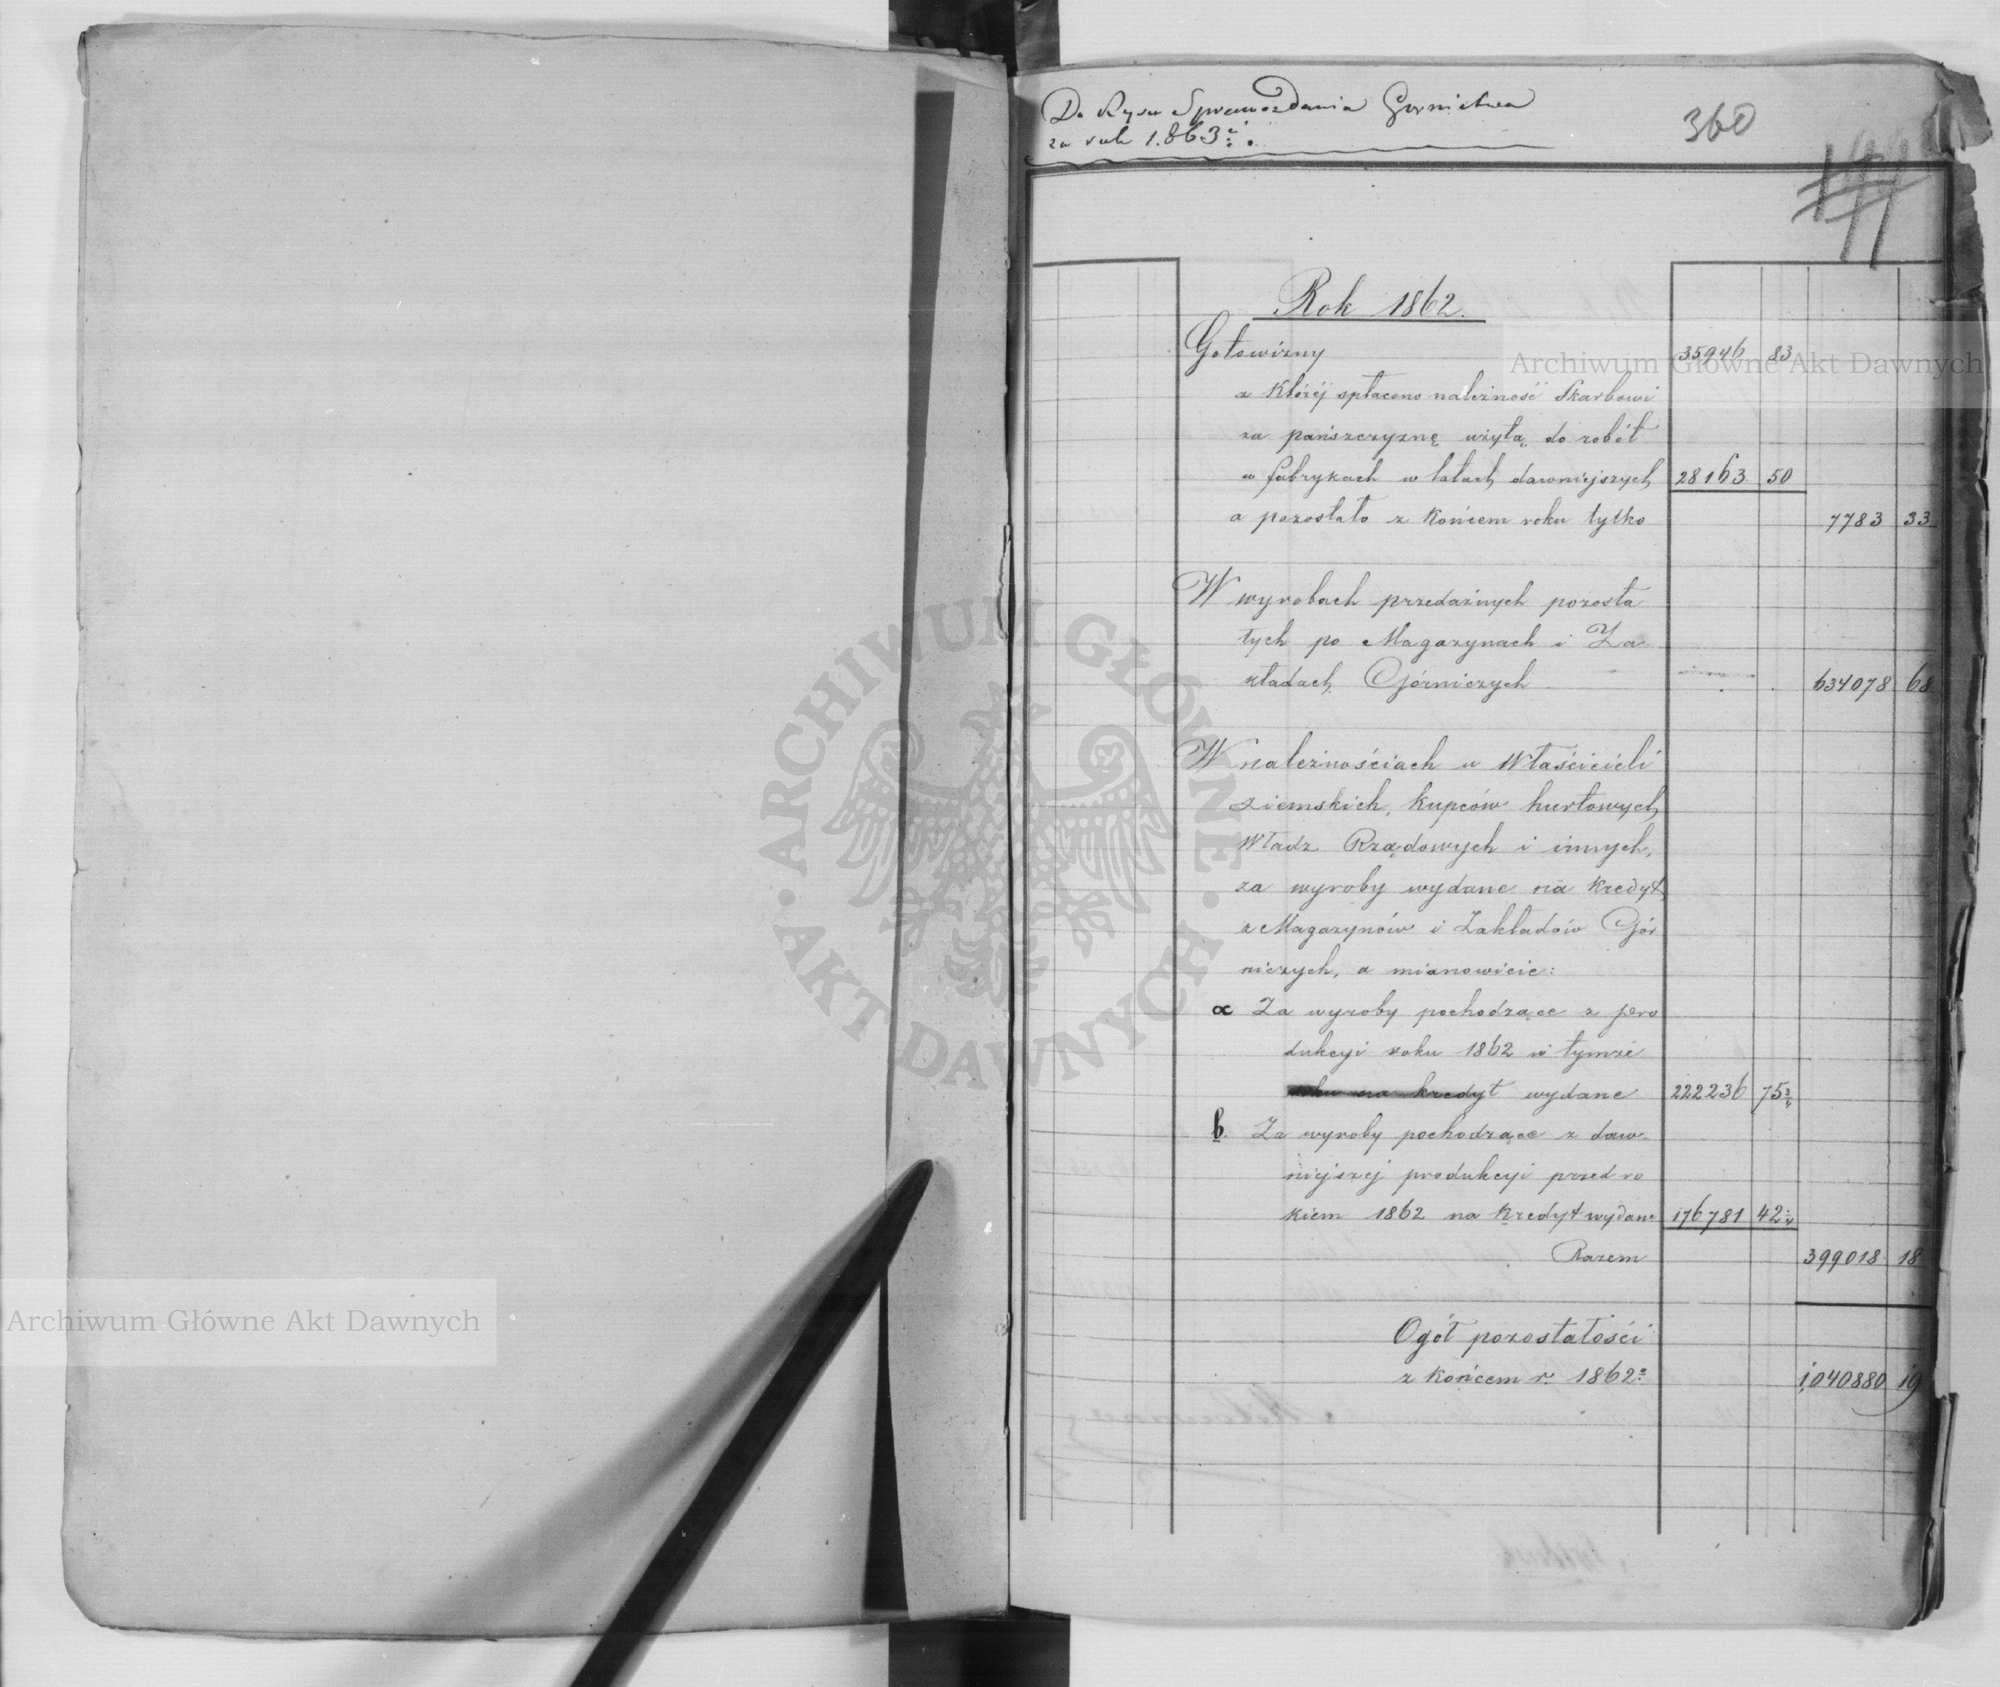 Do Rysu Sprawozdania Gornictwa
za rok 1.863
360
Rok 1862.
Gotowizny 35946 83
z któréj spłacono należność Skarbowi
za pańszczyznę użytą do robót
w fabrykach w latach dawniejszych 28163 50
a pozostało z końcem roku tylko 7783 33
W wyrobach przedażnych pozosta
łych po Magazynach i Za-
kładach Górniczych 634078 68
W należnościach u Właścicieli
ziemskich, kupców hurtowych,
Władz Rządowych i innych,
za wyroby wydane na kredyt,
z Magazynów i Zakładów Gór
niczych, a mianowicie:
a Za wyroby pochodzące z pro
dukcyi roku 1862 w tymże
roku na kredyt wydane 222236 75 3/4
b. Za wyroby pochodzące z daw-
niejszej produkcyi przed ro
kiem 1862 na kredyt wydane 176781 42 1/4
Razem 399018 18
Ogół pozostałości
z końcem r. 1862: 1,040880 19
Archiwum Główne Akt Dawnych
ARCHIWUM GŁÓWNE
AKT DAWNYCH
Archiwum Główne Akt Dawnych